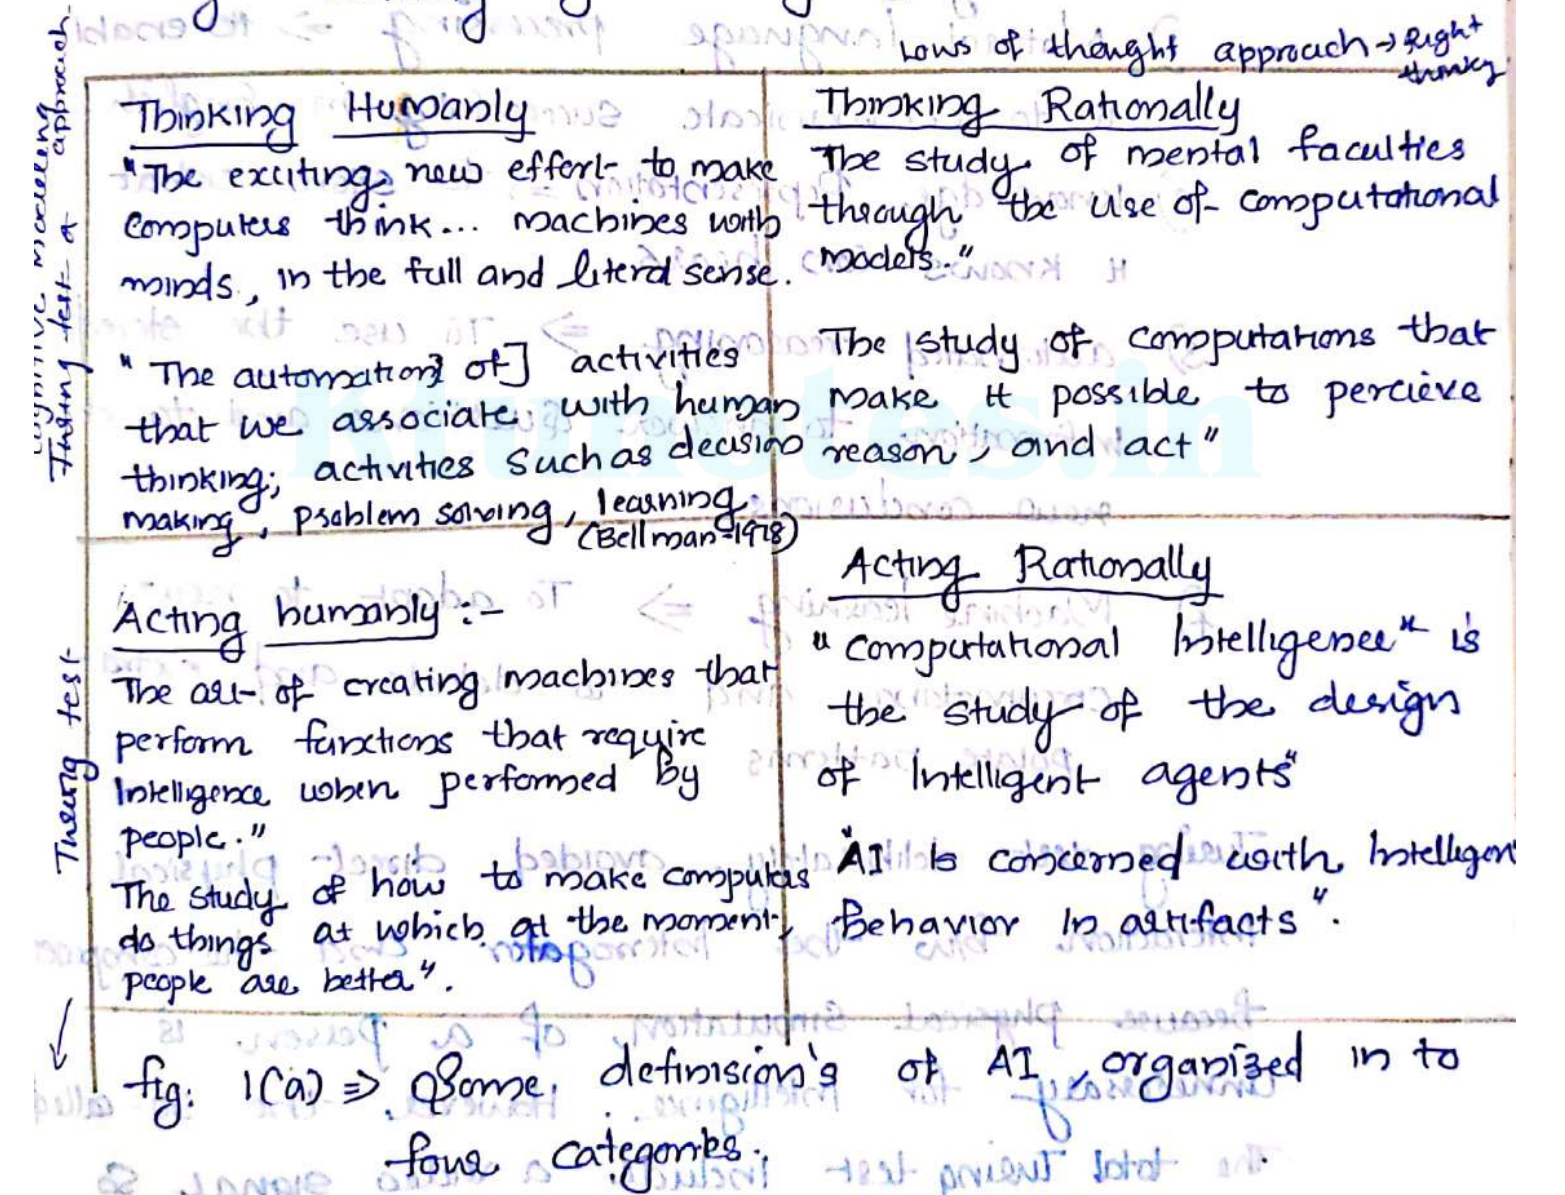 Laws of thought approach → Right
Thinking Humanly
"The exciting new effort to make
computers think... machines with
minds, in the full and literal sense.
"The automation] of] activities
that we associate with human
thinking; activities such as decision
making, problem solving, learning.
(Bellman-1978)
Thinking Rationally
The study of mental faculties
through the use of computational
models."
The study of computations that
make it possible to percieve
reason, and act"
Acting humanly :-
The art of creating machines that
perform functions that require
Intelligence when performed by
people."
The study of how to make computers
do things at which at the moment,
people are better".
Acting Rationally
"Computational Intelligence" is
the study of the design
of Intelligent agents"
"AI is concerned with Intelligen
Behavior in artifacts".
test
approach
fig: 1(a) ⇒ Some definision's of AI, organized in to
four categories.
Ktunotes.in